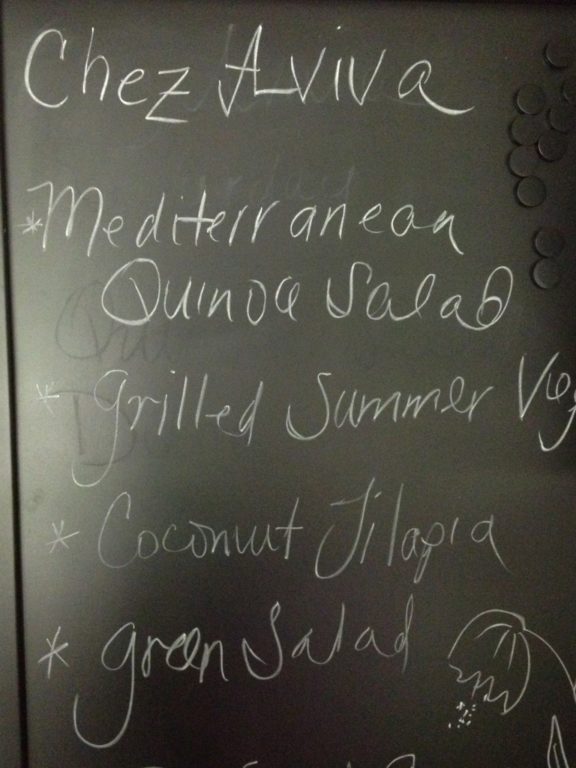 Chez Aviva
*Mediterranean
Quinoa Salad
* Grilled Summer Veg
* Coconut Tilapia
* green Salad